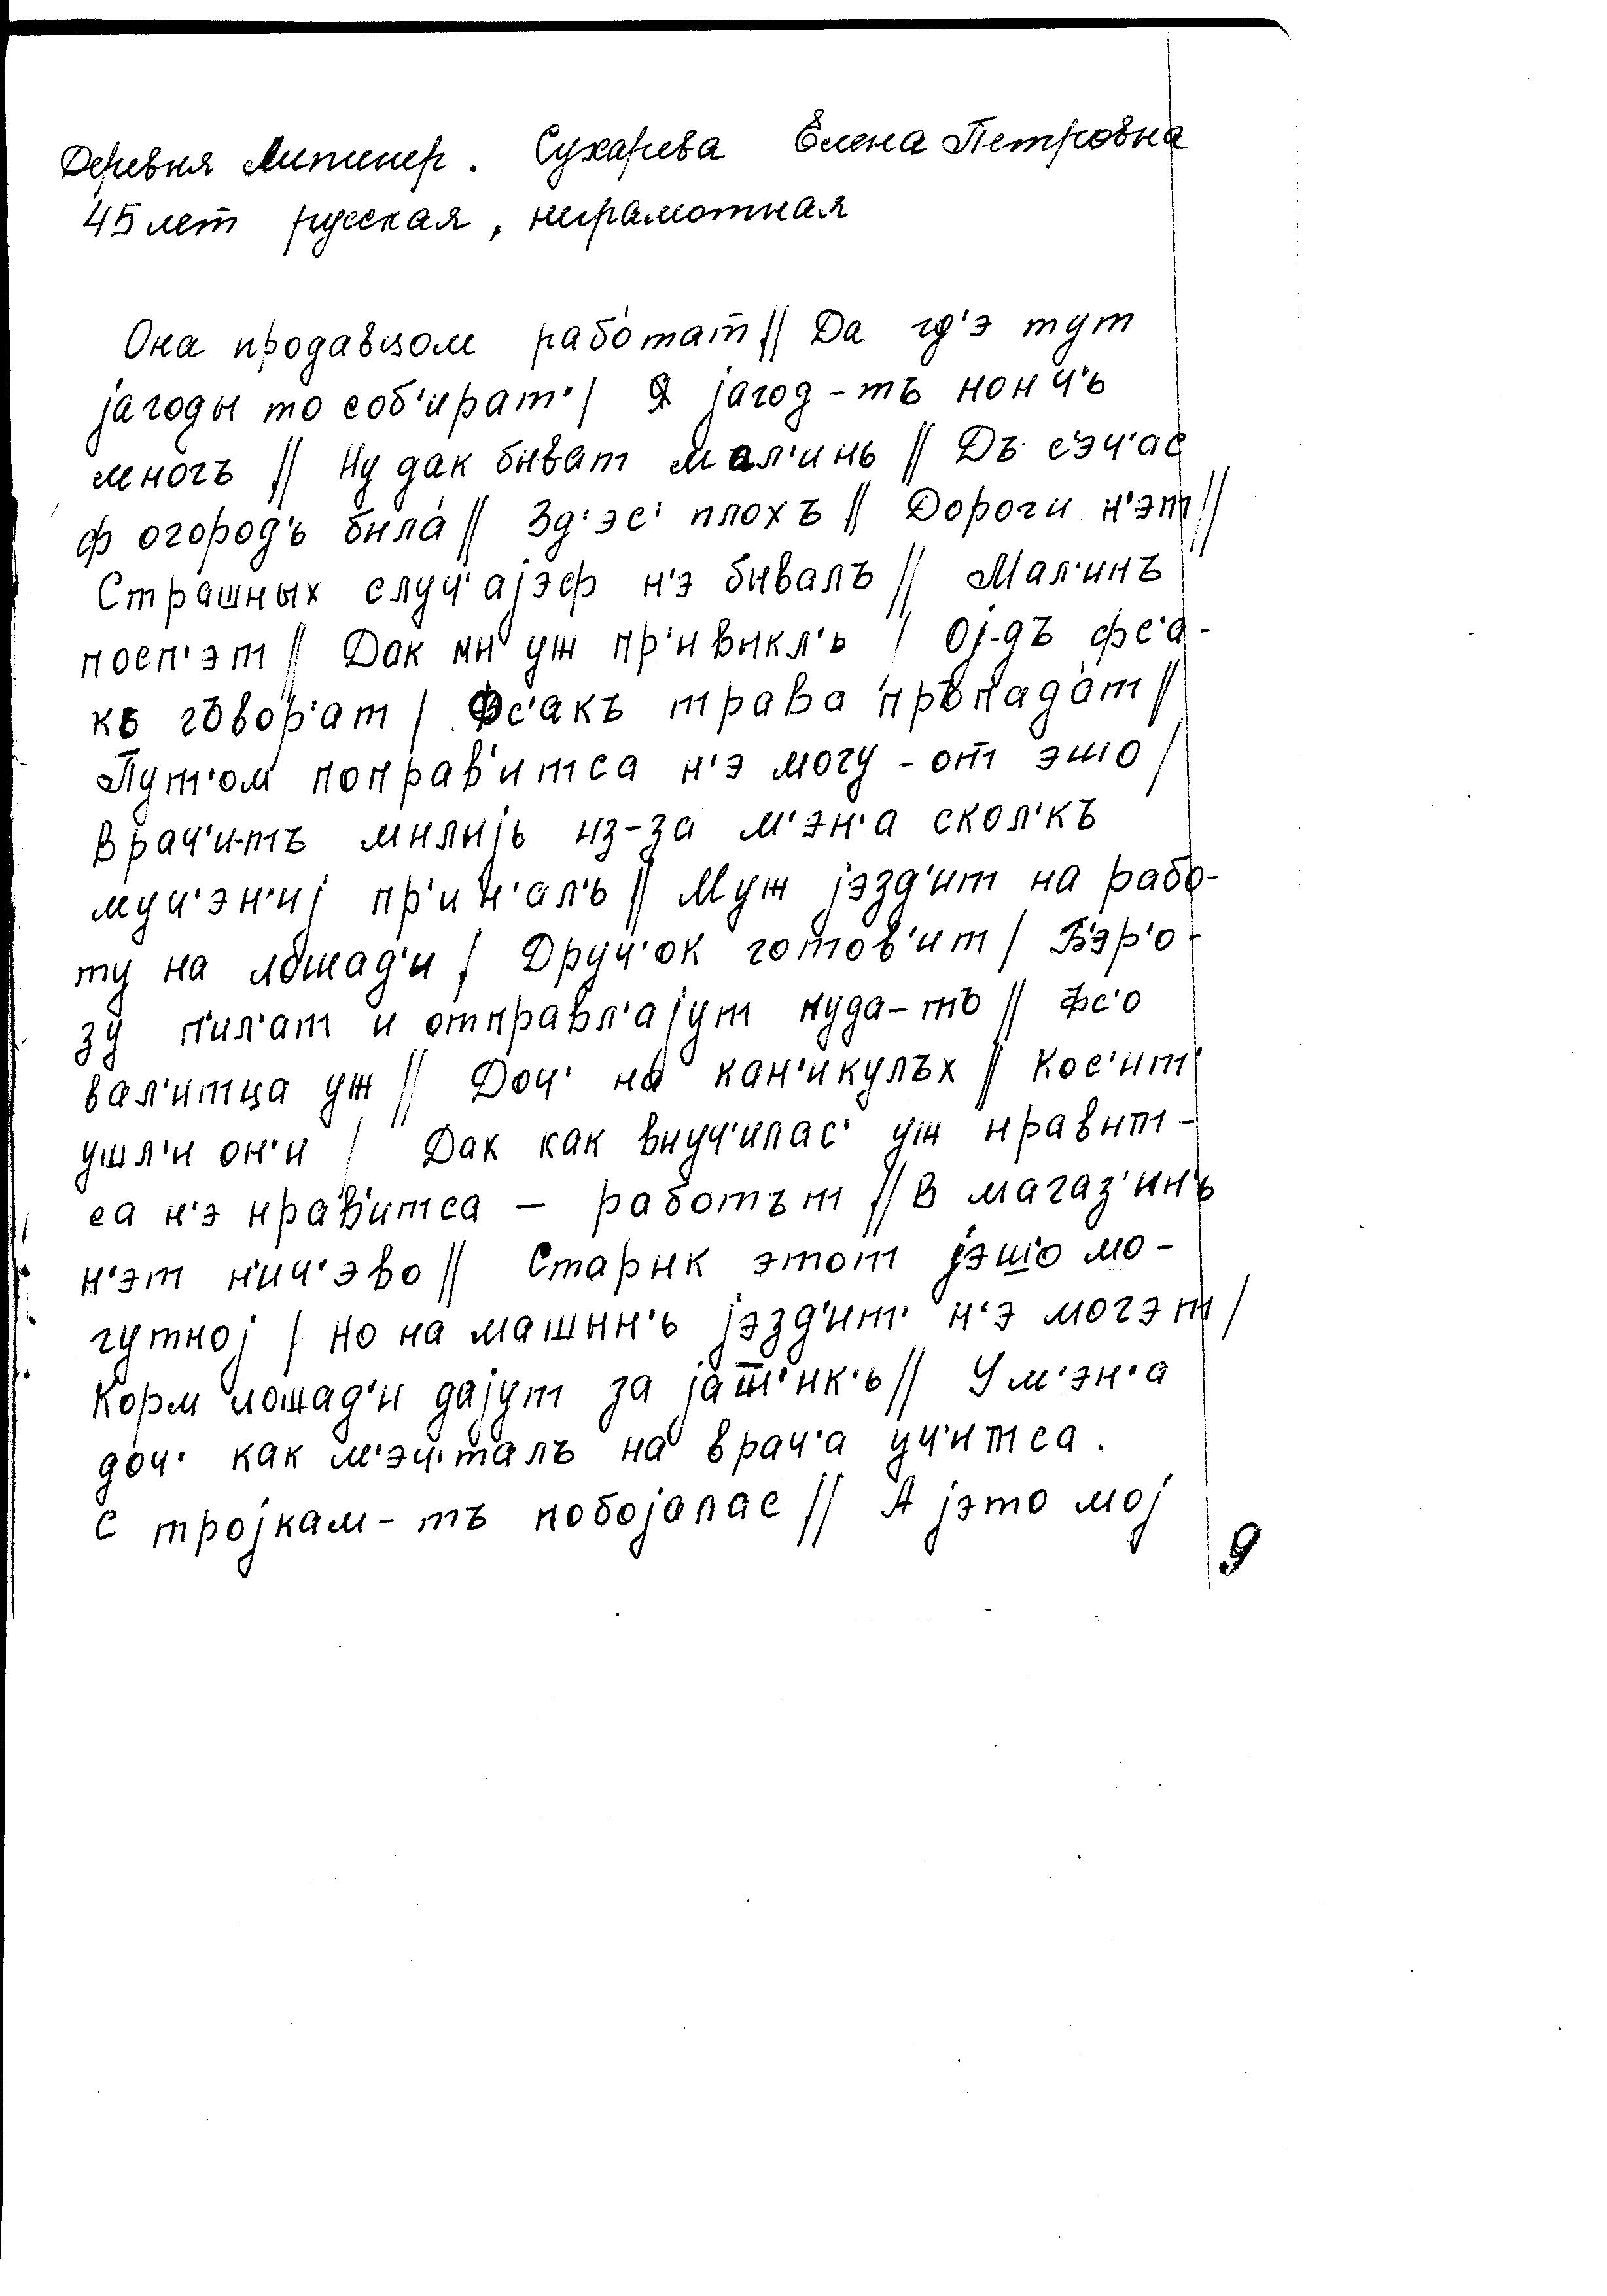 Деревня Липинер. Сухарева Елена Петровна
45 лет русская, неграмотная
Она продавцом рабо́тат // Да гд'э тут
jагоды то соб'ират' / Я jагод-тъ нонч'ь
многъ // Ну дак быват мал'инь // Дъ с'эч'ас
ф огород'ь была́ // Зд'эс' плохъ // Дороги н'эт //
Страшных случ'аjэф н'э бывалъ // Мал'инъ
посп'эт // Дак мы уж пр'ивыкл'ь / Оj-дъ фс'а-
къ гъвор'ат / Фс'акъ трава пръпада́т //
Пут'ом поправ'итса н'э могу-от эшо /
врач'и-тъ милыjь из-за м'эн'а скол'къ
муч'эн'иj пр'ин'ал'ь // Муж jэзд'ит на рабо-
ту на лошад'и / Друч'ок готов'ит / Б'эр'о-
зу п'ил'ат и отправл'аjут куда-тъ // Фс'о
вал'итца уж // Доч' на́ кан'икулъх // Кос'ит'
ушл'и он'и / Дак как выуч'илас' уж нравит-
са н'э нрав'итса — работът // В магаз'ин'ь
н'эт н'ич'эво // Старик этот jэшо мо-
гутноj / Но на машын'ь jэзд'ит' н'э могэт /
Корм лошад'и даjут за jат'ик'ь // У м'эн'а
доч' как м'эч'талъ на врач'а уч'итса.
С троjкам-тъ побоjалас // А jэто моj
9